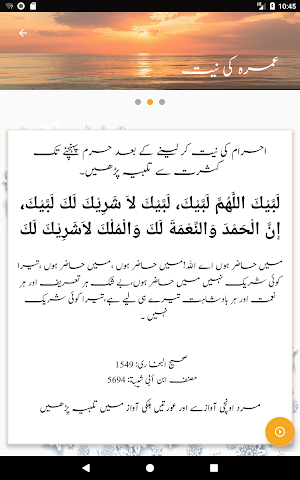 10:45
عمرہ کی نیت
احرام کی نیت کر لینے کے بعد حرم پہنچنے تک
کثرت سے تلبیہ پڑھیں۔
لَبَّيْكَ اللَّهُمَّ لَبَّيْكَ، لَبَّيْكَ لاَ شَرِيْكَ لَكَ لَبَّيْكَ،
إِنَّ الْحَمْدَ وَالنِّعْمَةَ لَكَ وَالْمُلْكَ لاَشَرِيْكَ لَكَ
میں حاضر ہوں اے اللہ!میں حاضر ہوں ،میں حاضر ہوں ،تیرا
کوئی شریک نہیں میں حاضر ہوں،بے شک ہر تعریف اور ہر
نعمت اور ہر بادشاہت تیرے ہی لیے ہے،تیرا کوئی شریک
نہیں ۔
صحيح البخاری: 1549
مصنف ابن أبي شيبة: 5694
مرد اونچی آوازسے اور عورتیں ہلکی آواز میں تلبیہ پڑھیں